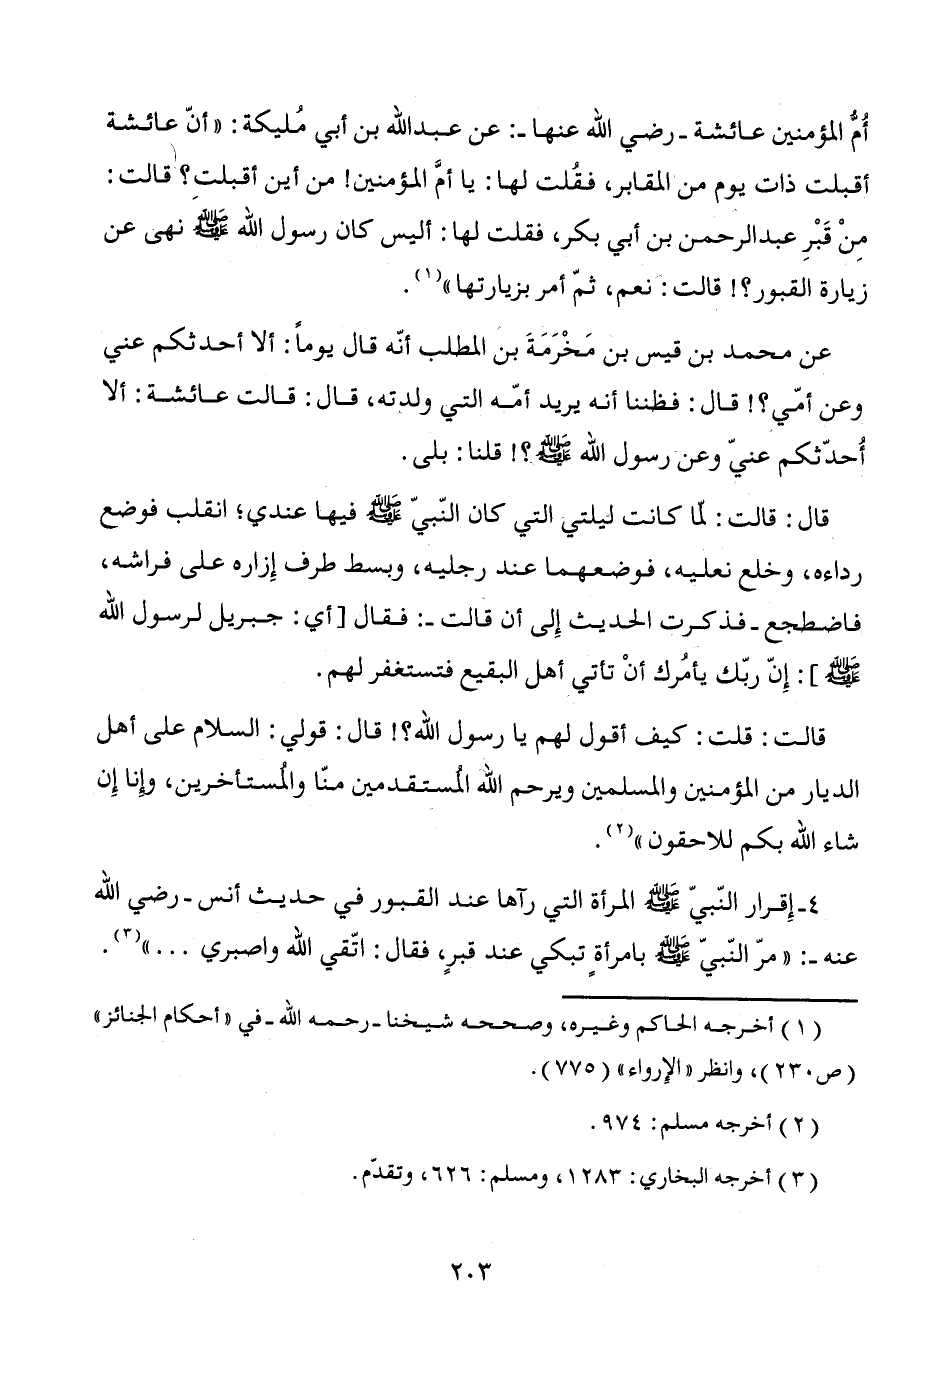 أُمُّ المؤمنين عائشة ـ رضي الله عنها ـ: عن عبدالله بن أبي مُليكة: «أنّ عائشة
أقبلت ذات يوم من المقابر، فقُلت لها: يا أمَّ المؤمنين! من أين أقبلتِ؟ قالت:
مِنْ قَبْرِ عبدالرحمن بن أبي بكر، فقلت لها: أليس كان رسول الله ﷺ نهى عن
زيارة القبور؟! قالت: نعم، ثمّ أمر بزيارتها»(١).
عن محمد بن قيس بن مَخْرَمَةَ بن المطلب أنّه قال يوماً: ألا أحدثكم عني
وعن أمّي؟! قال: فظننا أنه يريد أمّه التي ولدته، قال: قالت عائشة: ألا
أُحدّثكم عنيّ وعن رسول الله ﷺ؟! قلنا: بلى.
قال: قالت: لمّا كانت ليلتي التي كان النّبيّ ﷺ فيها عندي؛ انقلب فوضع
رداءه، وخلع نعليه، فوضعهما عند رجليه، وبسط طرف إزاره على فراشه،
فاضطجع ـ فذكرت الحديث إلى أن قالت ـ: فقال [أي: جبريل لرسول الله
ﷺ]: إنّ ربّك يأمُرك أنْ تأتي أهل البقيع فتستغفر لهم.
قالت: قلت: كيف أقول لهم يا رسول الله؟! قال: قولي: السلام على أهل
الديار من المؤمنين والمسلمين ويرحم الله المُستقدمين منّا والمُستأخرين، وإنا إن
شاء الله بكم للاحقون»(٢).
٤ـ إقرار النّبيّ ﷺ المرأة التي رآها عند القبور في حديث أنس ـ رضي الله
عنه ـ: «مرّ النّبيّ ﷺ بامرأةٍ تبكي عند قبرٍ، فقال: اتّقي الله واصبري ...»(٣).
(١) أخرجه الحاكم وغيره، وصححه شيخنا ـ رحمه الله ـ في «أحكام الجنائز»
(ص٢٣٠)، وانظر «الإرواء» (٧٧٥).
(٢) أخرجه مسلم: ٩٧٤.
(٣) أخرجه البخاري: ١٢٨٣، ومسلم: ٦٢٦، وتقدّم.
٢٠٣